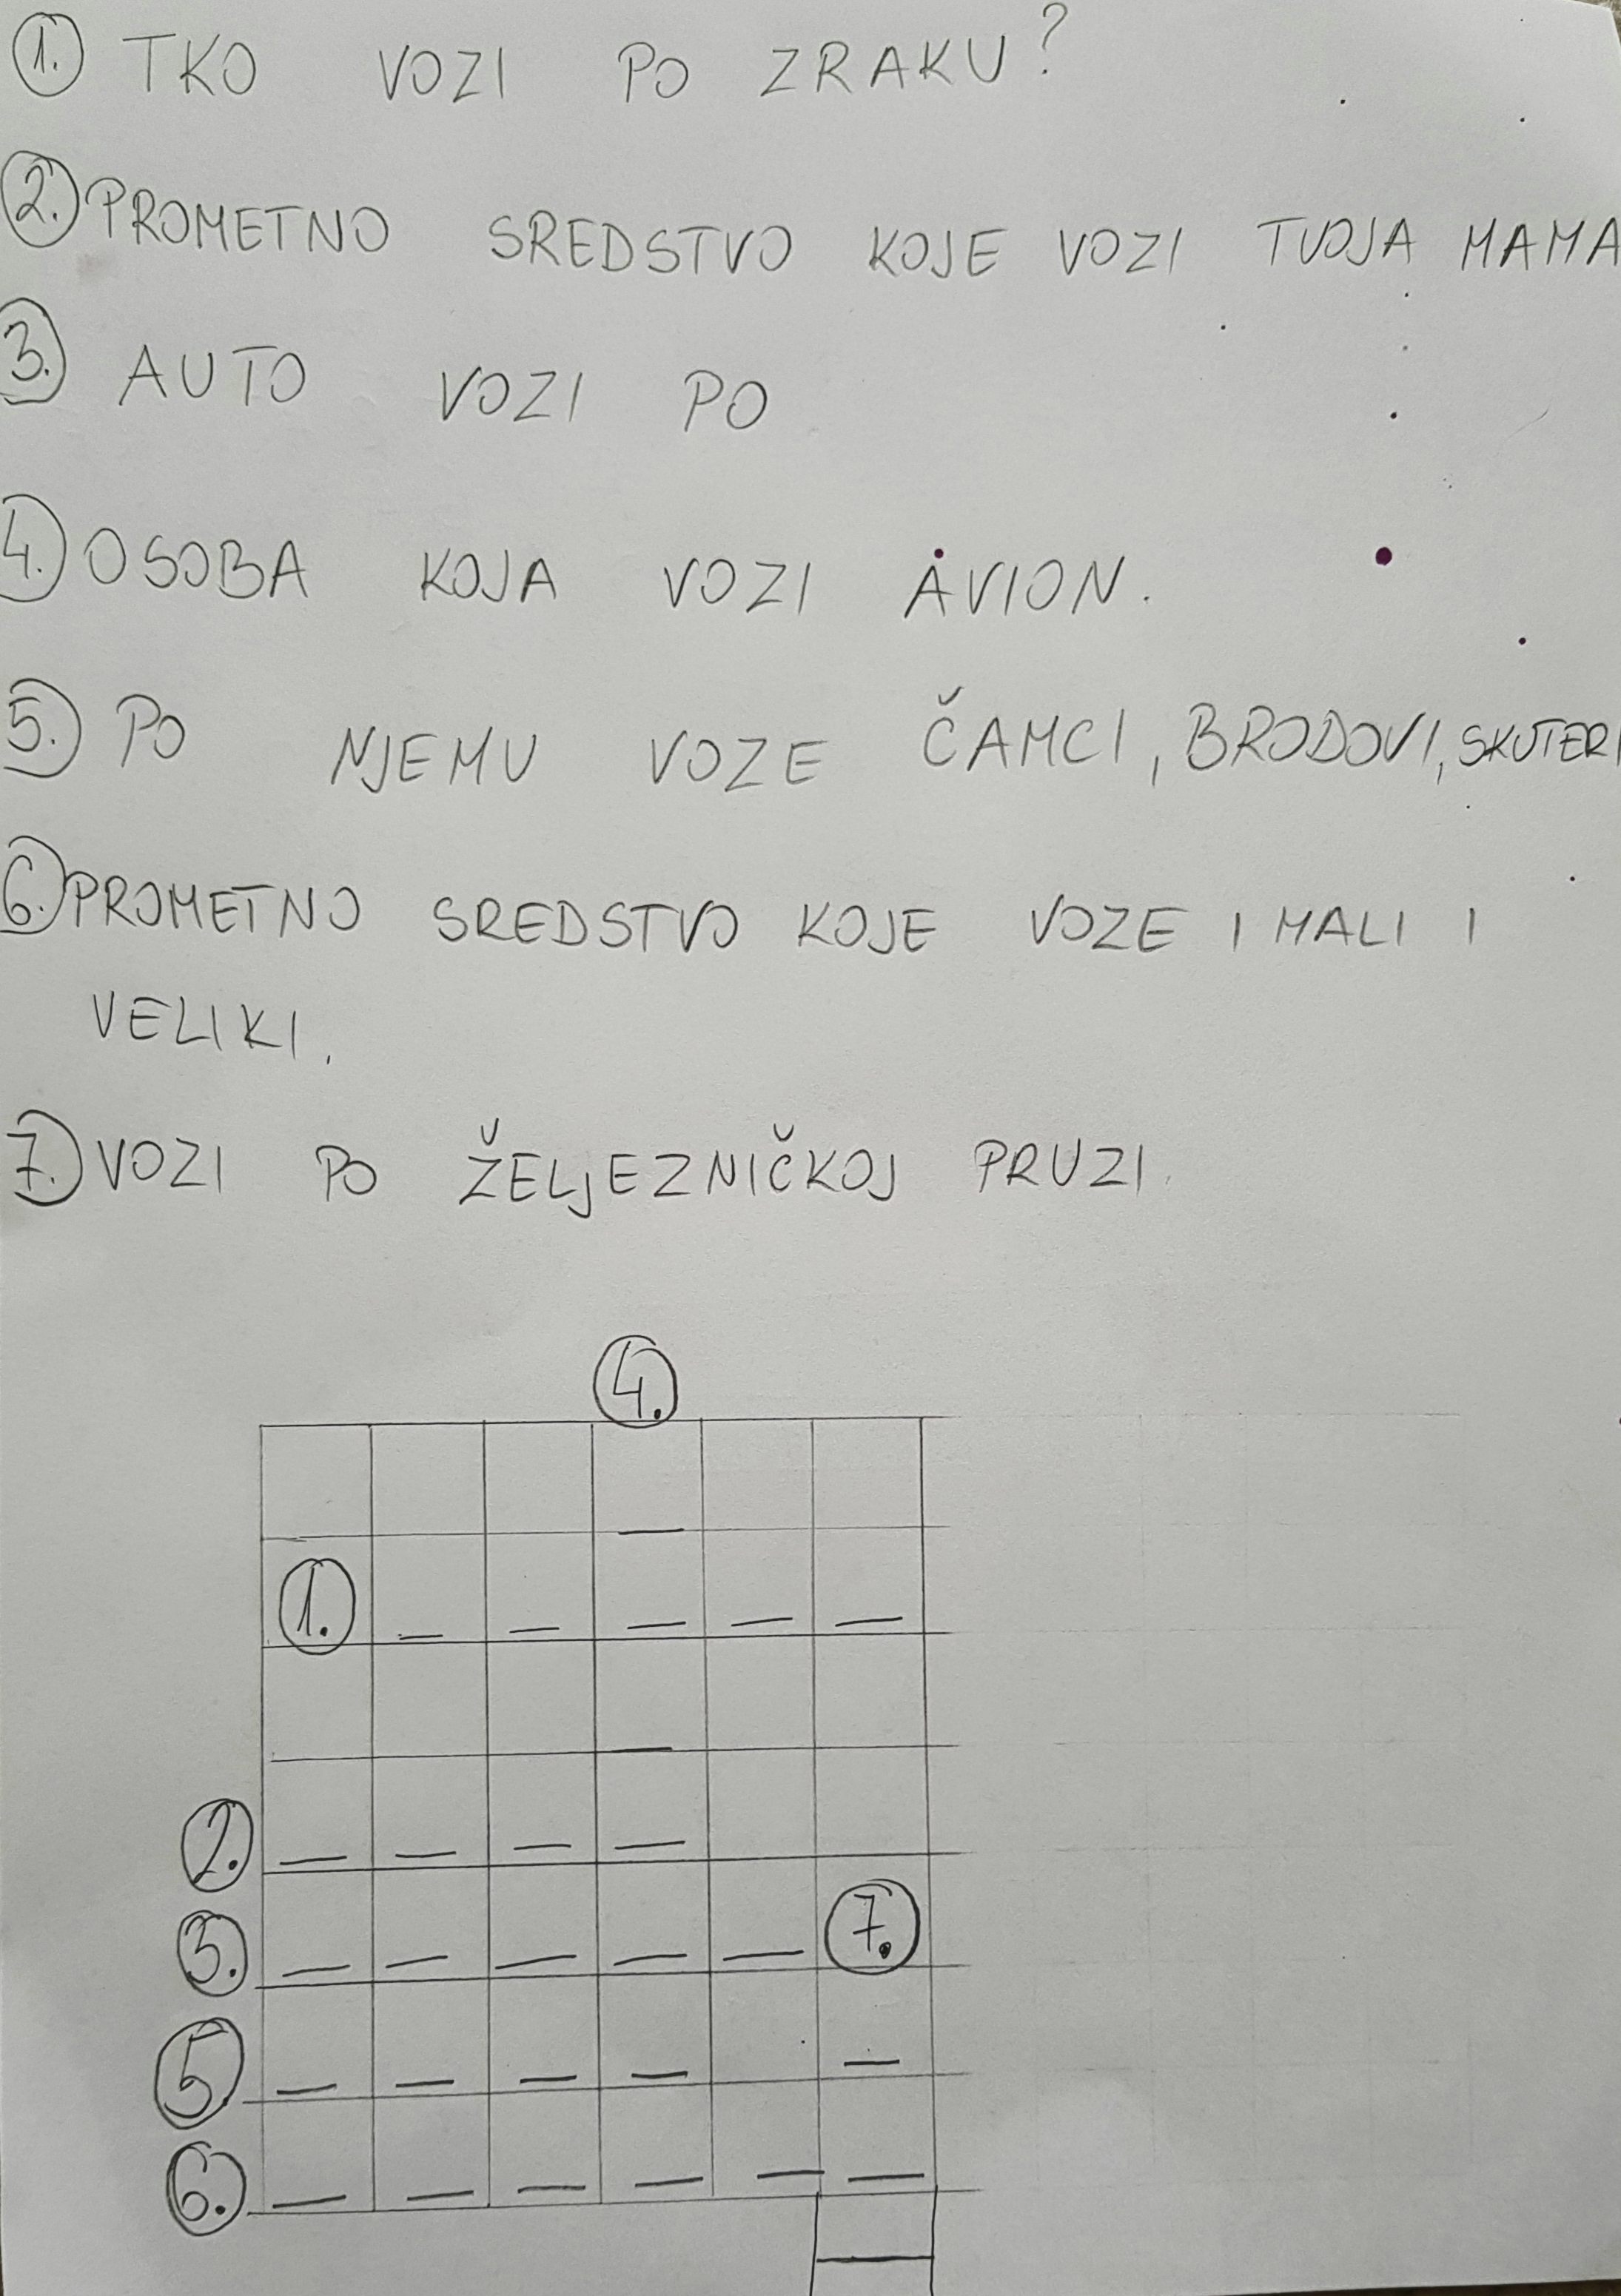 1. TKO VOZI PO ZRAKU?
2. PROMETNO SREDSTVO KOJE VOZI TVOJA MAMA
3. AUTO VOZI PO
4. OSOBA KOJA VOZI AVION.
5. PO NJEMU VOZE ČAMCI, BRODOVI, SKUTERI
6. PROMETNO SREDSTVO KOJE VOZE I MALI I
VELIKI.
7. VOZI PO ŽELJEZNIČKOJ PRUZI.
4.
1.
2.
3. 7.
5
6.